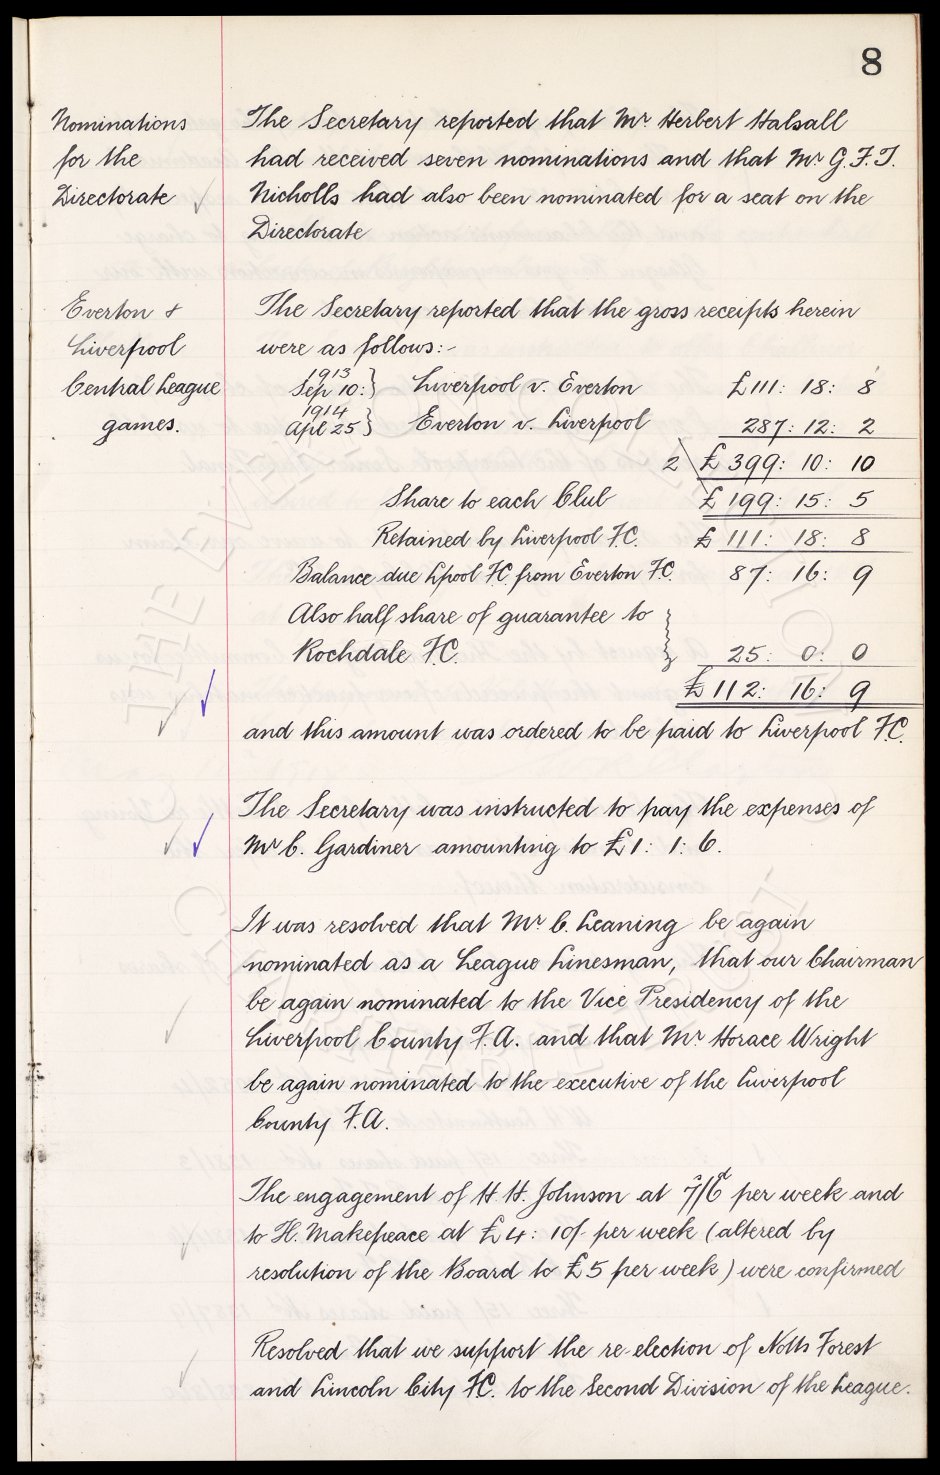 8
Nominations
for the
Directorate
The Secretary reported that Mr Herbert Halsall
had received seven nominations and that Mr G.F.T.
Nicholls had also been nominated for a seat on the
Directorate
Everton &
Liverpool
Central League
games.
The Secretary reported that the gross receipts herein
were as follows:-
1913
Sep 10: } Liverpool v. Everton £111: 18: 8
1914
Apl 25 } Everton v. Liverpool 287: 12: 2
2 \ £399: 10: 10
Share to each Club £199: 15: 5
Retained by Liverpool F.C. £111: 18: 8
Balance due Lpool F.C. from Everton F.C. 87: 16: 9
Also half share of guarantee to
Rochdale F.C. } 25: 0: 0
£112: 16: 9
and this amount was ordered to be paid to Liverpool F.C.
The Secretary was instructed to pay the expenses of
Mr C. Gardiner amounting to £1: 1: 6.
It was resolved that Mr C. Leaning be again
nominated as a League Linesman, that our Chairman
be again nominated to the Vice Presidency of the
Liverpool County F.A. and that Mr Horace Wright
be again nominated to the executive of the Liverpool
County F.A.
The engagement of H.H. Johnson at 7/6d per week and
to H. Makepeace at £4: 10/- per week (altered by
resolution of the Board to £5 per week) were confirmed
Resolved that we support the re-election of Notts Forest
and Lincoln City F.C. to the Second Division of the League.